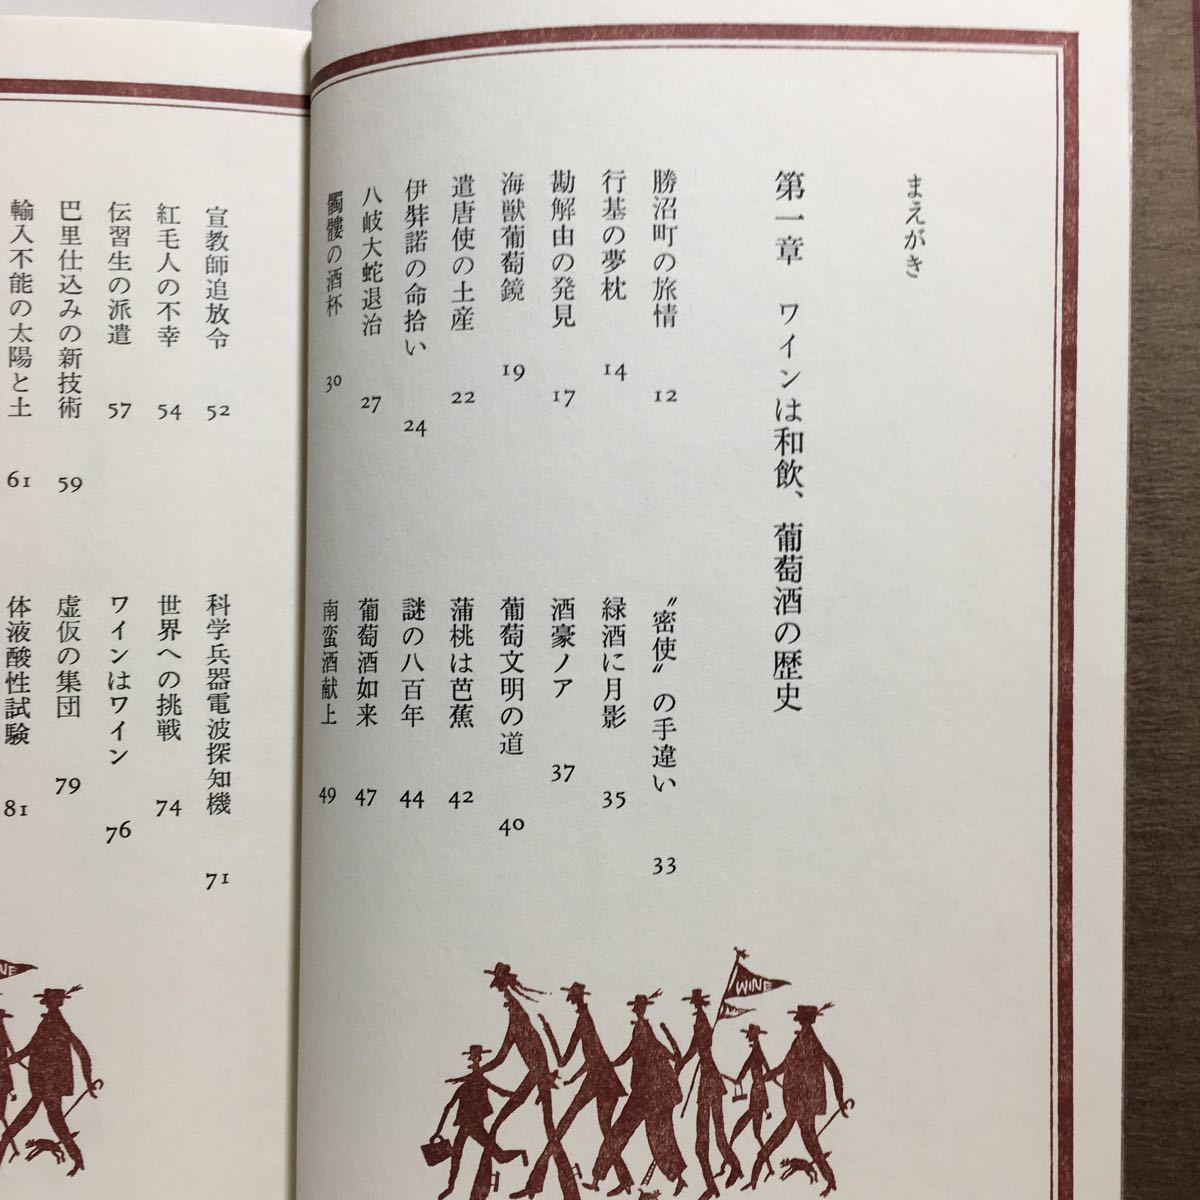 まえがき
第一章　ワインは和飲、葡萄酒の歴史
勝沼町の旅情 12
行基の夢枕 14
勘解由の発見 17
海獣葡萄鏡 19
遣唐使の土産 22
伊弉諾の命拾い 24
八岐大蛇退治 27
髑髏の酒杯 30
〝密使〟の手違い 33
緑酒に月影 35
酒豪ノア 37
葡萄文明の道 40
蒲桃は芭蕉 42
謎の八百年 44
葡萄酒如来 47
南蛮酒献上 49
WINE
宣教師追放令 52
紅毛人の不幸 54
伝習生の派遣 57
巴里仕込みの新技術 59
輸入不能の太陽と土 61
科学兵器電波探知機 71
世界への挑戦 74
ワインはワイン 76
虚仮の集団 79
体液酸性試験 81